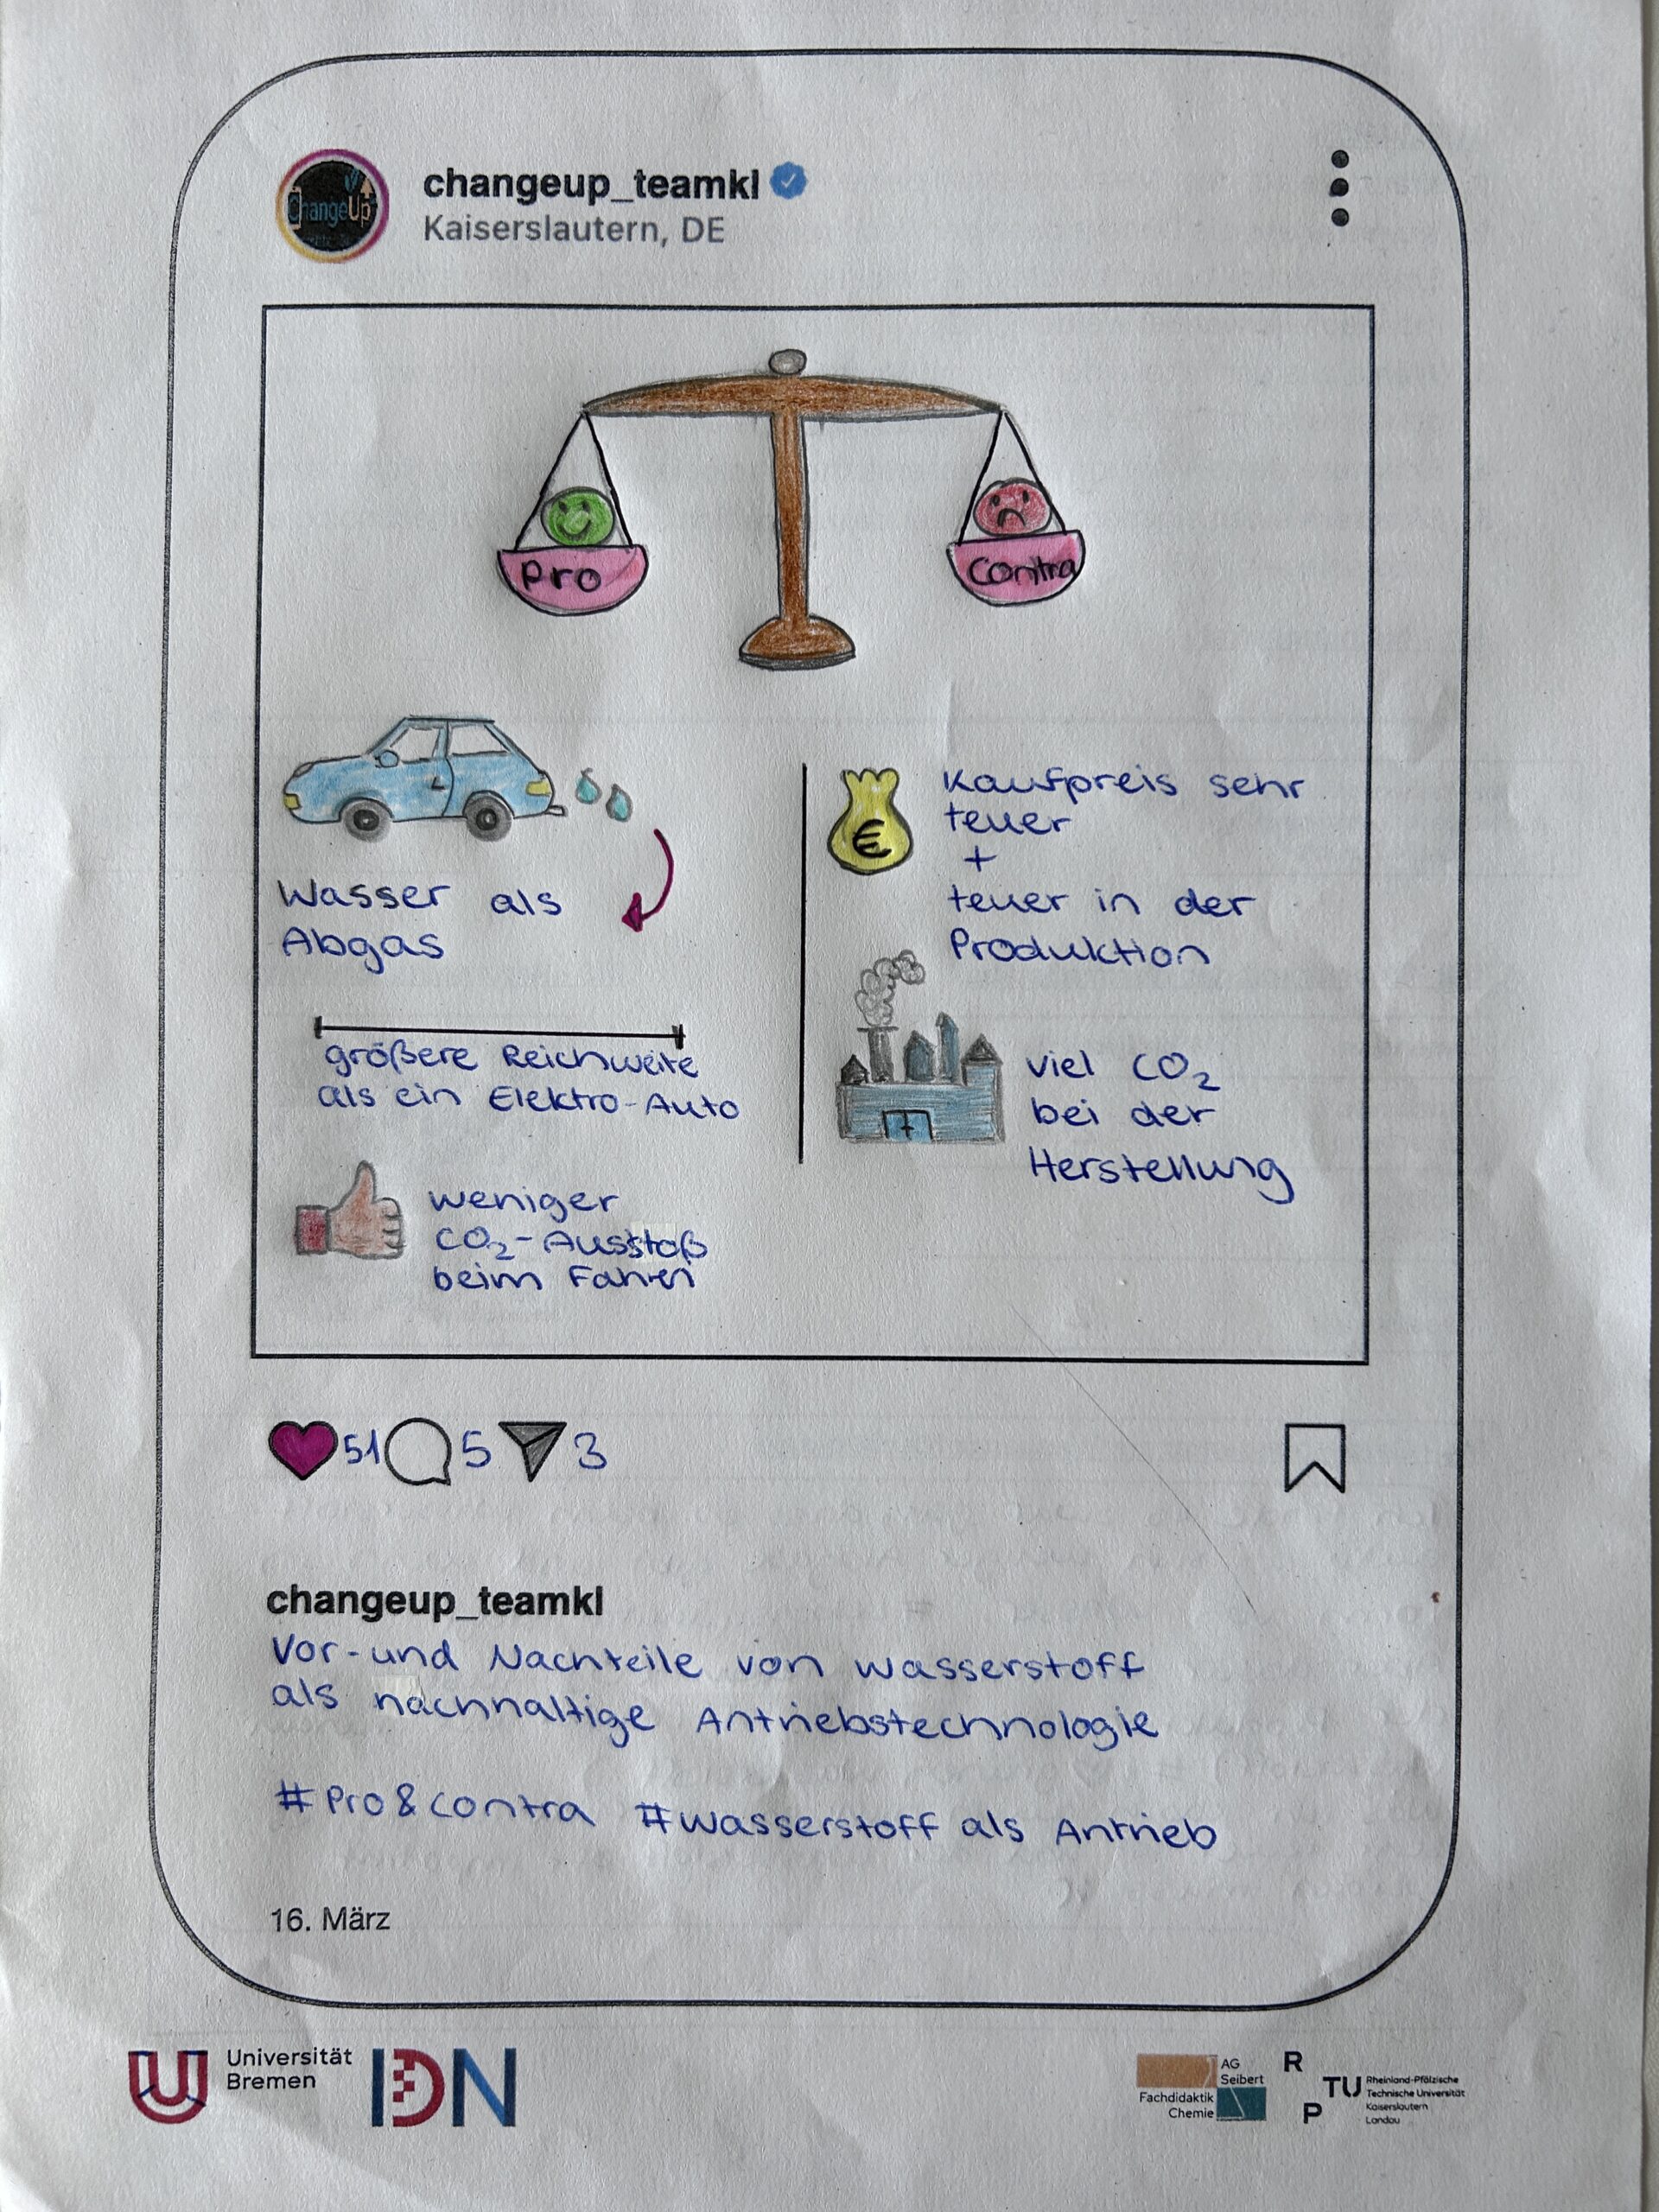 ChangeUp
changeup_teamkl
Kaiserslautern, DE
Pro
Contra
Wasser als
Abgas
größere Reichweite
als ein Elektro-Auto
weniger
CO₂-Ausstoß
beim Fahren
€
Kaufpreis sehr
teuer
+
teuer in der
Produktion
viel CO₂
bei der
Herstellung
51 5 3
changeup_teamkl
Vor- und Nachteile von Wasserstoff
als nachhaltige Antriebstechnologie
#Pro&Contra #Wasserstoff als Antrieb
16. März
Universität
Bremen
IDN
AG
Seibert
Fachdidaktik
Chemie
R
TU
P
Rheinland-Pfälzische
Technische Universität
Kaiserslautern
Landau